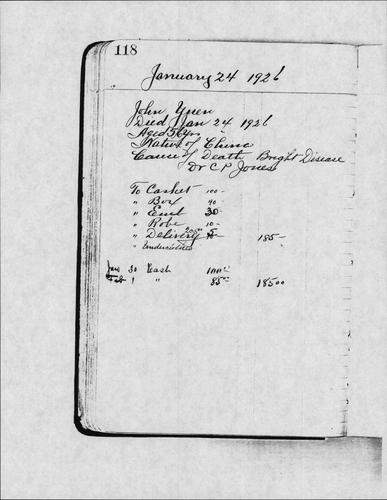 118
January 24 1926
John Yuen
Died Jan 24 1926
Aged 56 yrs
Native of China
Cause of Death Bright Disease
Dr C P Jones
To Casket 100-
" Box 40-
" Emb 30-
" Robe 10-
" Delivery 5- 185-
"
Jan 30 Cash 100
Feb 1 " 85 185 00